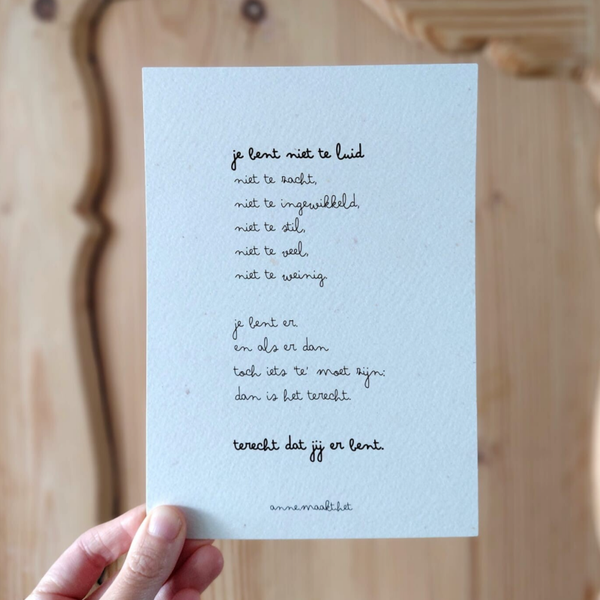 je bent niet te luid
niet te zacht,
niet te ingewikkeld,
niet te stil,
niet te veel,
niet te weinig.
je bent er.
en als er dan
toch iets 'te' moet zijn:
dan is het terecht.
terecht dat jij er bent.
annemaakthet